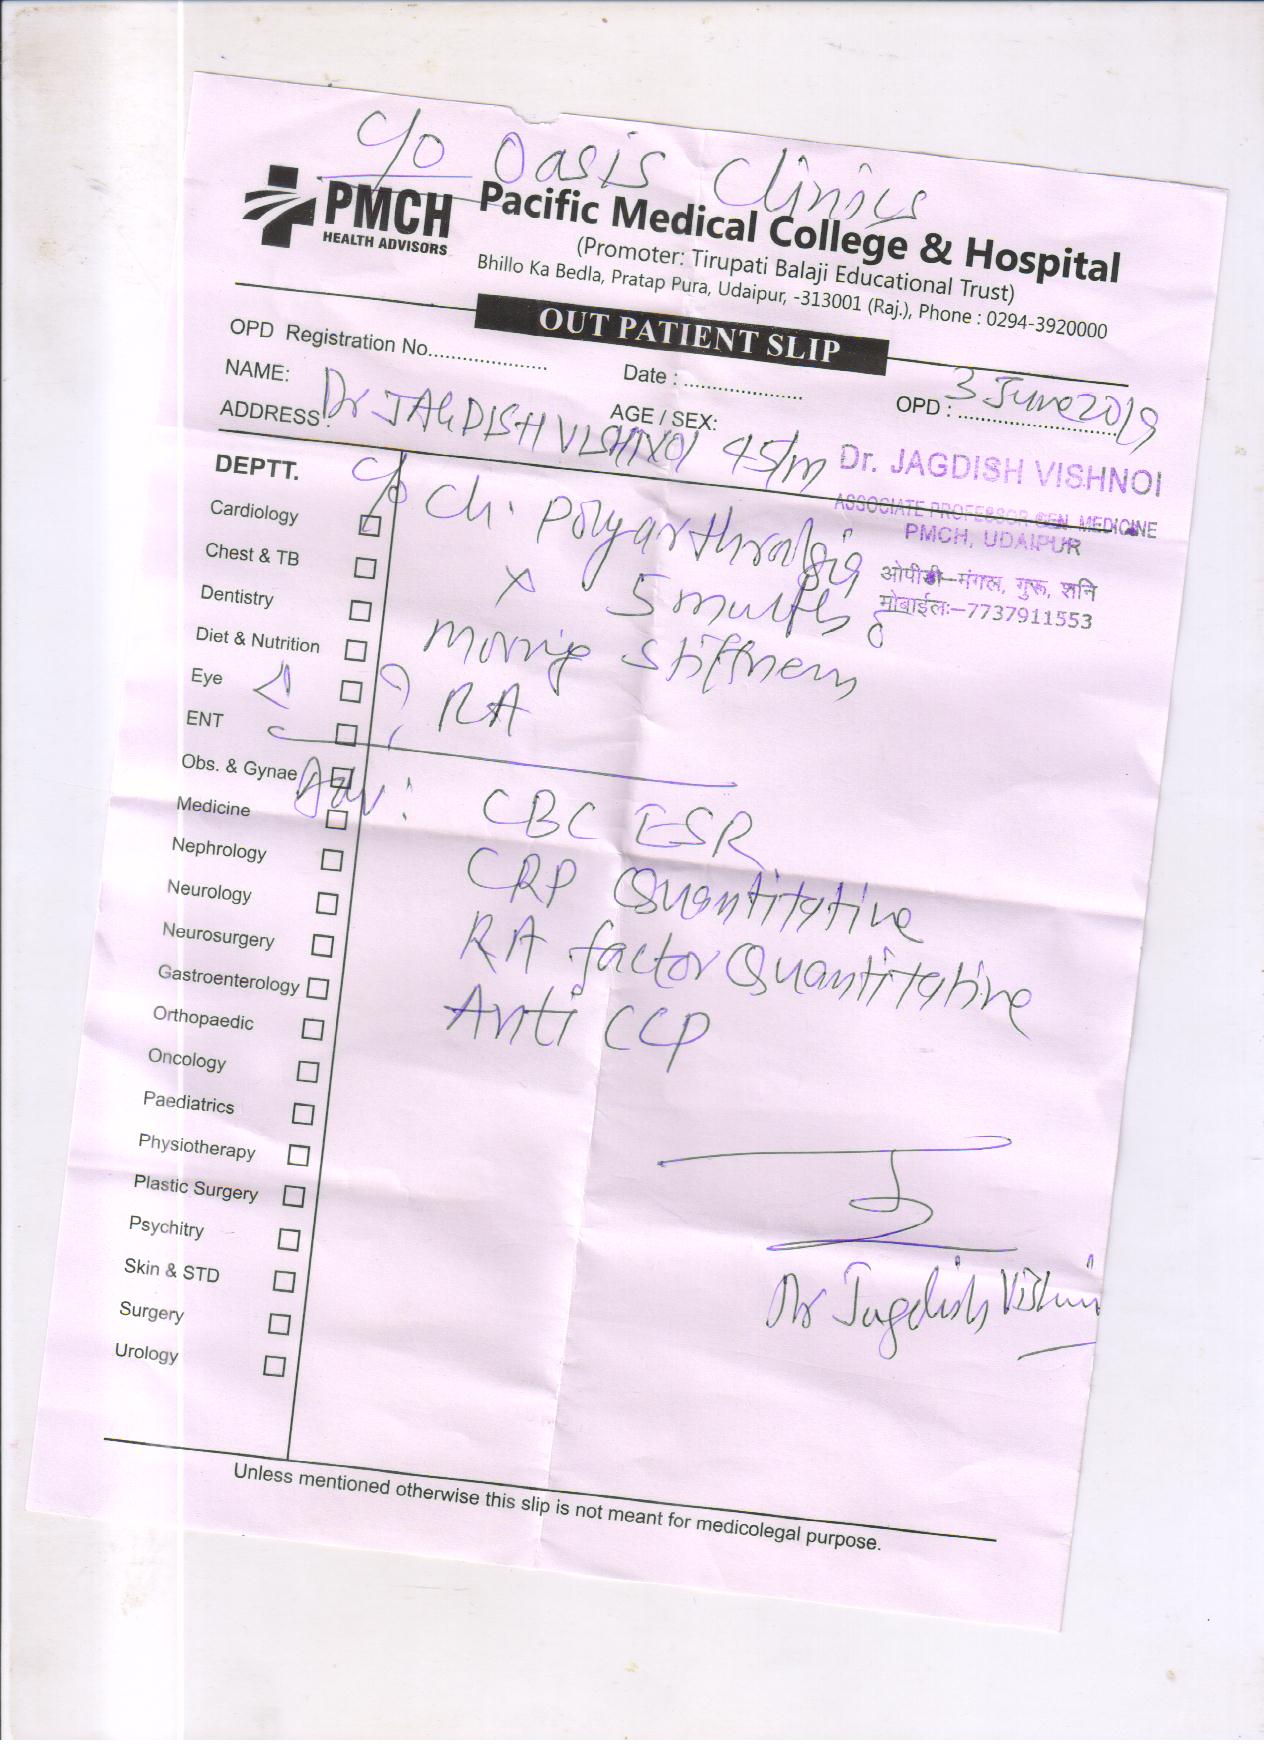 c/o Oasis Clinics
PMCH
HEALTH ADVISORS
Pacific Medical College & Hospital
(Promoter: Tirupati Balaji Educational Trust)
Bhillo Ka Bedla, Pratap Pura, Udaipur, -313001 (Raj.), Phone : 0294-3920000
OUT PATIENT SLIP
OPD Registration No.................... Date : .................... OPD : ....................
3 June 2019
NAME: AGE / SEX:
Dr JAGDISH VISHNOI 45/m
ADDRESS :
Dr. JAGDISH VISHNOI
ASSOCIATE PROFESSOR GEN. MEDICINE
PMCH, UDAIPUR
ओपीडी–मंगल, गुरू, शनि
मोबाईल:–7737911553
c/o Ch. polyarthralgia
x 5 months
morning stiffness
? RA
Adv: CBC ESR
CRP Quantitative
RA factor Quantitative
Anti CCP
Dr Jagdish Vishnoi
DEPTT.
Cardiology
Chest & TB
Dentistry
Diet & Nutrition
Eye
ENT
Obs. & Gynae
Medicine
Nephrology
Neurology
Neurosurgery
Gastroenterology
Orthopaedic
Oncology
Paediatrics
Physiotherapy
Plastic Surgery
Psychitry
Skin & STD
Surgery
Urology
Unless mentioned otherwise this slip is not meant for medicolegal purpose.